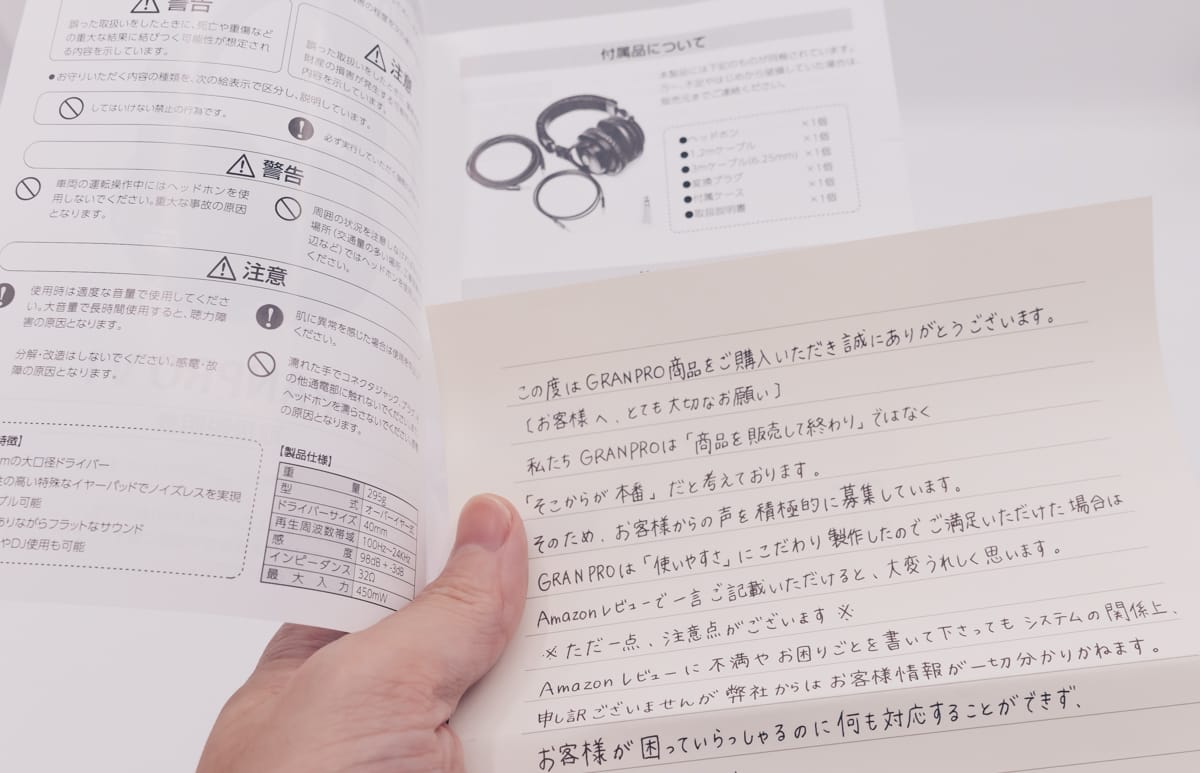 警告
誤った取扱いをしたときに、死亡や重傷など
の重大な結果に結びつく可能性が想定され
る内容を示しています。
注意
誤った取扱いをした
財産の損害が発生する
内容を示しています。
●お守りいただく内容の種類を、次の絵表示で区分し、説明しています。
してはいけない禁止の行為です。
必ず実行していただく
警告
車両の運転操作中にはヘッドホンを使
用しないでください。重大な事故の原因
となります。
周囲の状況を注意しなければ
場所(交通量の多い場所、
辺など)ではヘッドホンを
ください。
注意
使用時は適度な音量で使用してくださ
い。大音量で長時間使用すると、聴力障
害の原因となります。
肌に異常を感じた場合は使用を
ください。
分解・改造はしないでください。感電・故
障の原因となります。
濡れた手でコネクタジャック、プラグ、
の他通電部に触れないでください。
ヘッドホンを濡らさないでください。感電
の原因となります。
特徴】
mの大口径ドライバー
の高い特殊なイヤーパッドでノイズレスを実現
ブル可能
ありながらフラットなサウンド
やDJ使用も可能
【製品仕様】
重量 295g
型式 オーバーイヤー式
ドライバーサイズ 40mm
再生周波数帯域 100Hz~24KHz
感度 98dB+-3dB
インピーダンス 32Ω
最大入力 450mW
付属品について
本製品には下記のものが同梱されています。
万一、不足やはじめから破損していた場合は、
販売元までご連絡ください。
●ヘッドホン ×1個
●1.2mケーブル ×1個
●3mケーブル(6.25mm) ×1個
●変換プラグ ×1個
●付属ケース ×1個
●取扱説明書 ×1個
この度はGRANPRO商品をご購入いただき誠にありがとうございます。
[お客様へ、とても大切なお願い]
私たちGRANPROは「商品を販売して終わり」ではなく
「そこからが本番」だと考えております。
そのため、お客様からの声を積極的に募集しています。
GRANPROは「使いやすさ」にこだわり製作したのでご満足いただけた場合は
Amazonレビューで一言ご記載いただけると、大変うれしく思います。
※ただ一点、注意点がございます※
Amazonレビューに不満やお困りごとを書いて下さってもシステムの関係上、
申し訳ございませんが弊社からはお客様情報が一切分かりかねます。
お客様が困っていらっしゃるのに何も対応することができず、